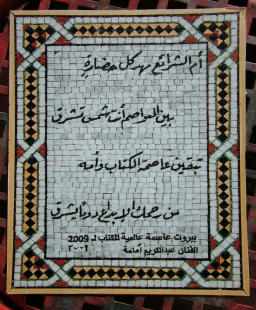 أم الشرائع مهد كل حضارة
بين العواصم أنت شمس تشرق
تبقين عاصمة الكتاب وأمه
من رحمك الإبداع دوماً يشرق
بيروت عاصمة عالمية للكتاب لـ 2009
الفنان عبدالكريم أمامة ٢٠٠٩